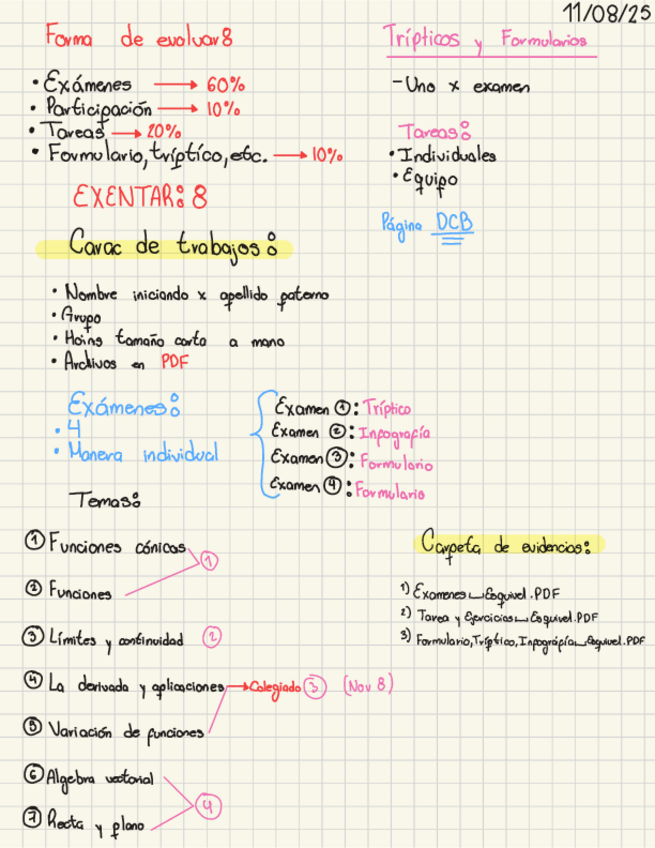 11/08/25
Forma de evaluar:
• Exámenes → 60%
• Participación → 10%
• Tareas → 20%
• Formulario, tríptico, etc. → 10%
EXENTAR: 8
Trípticos y Formularios
- Uno x examen
Tareas:
• Individuales
• Equipo
Página DCB
Carac de trabajos:
• Nombre iniciando x apellido paterno
• Grupo
• Hojas tamaño carta a mano
• Archivos en PDF
Exámenes:
• 4
• Manera individual
Examen ①: Tríptico
Examen ②: Infografía
Examen ③: Formulario
Examen ④: Formulario
Temas:
① Funciones cónicas
①
② Funciones
③ Límites y continuidad ②
④ La derivada y aplicaciones → Colegiado ③ (Nov 8)
⑤ Variación de funciones
⑥ Algebra vectorial
④
⑦ Recta y plano
Carpeta de evidencias:
1) Examenes_Esquivel.PDF
2) Tarea y Ejercicios_Esquivel.PDF
3) Formulario, Tríptico, Infografía_Esquivel.PDF